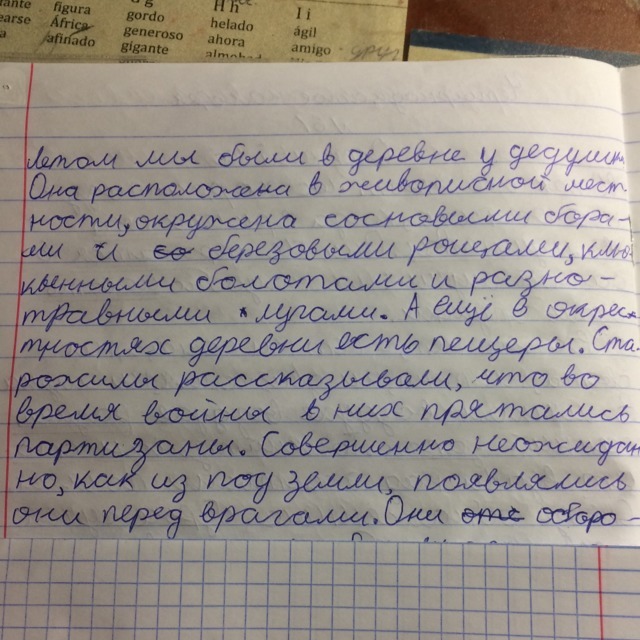 figura
gordo
H h
I i
earse
África
generoso
helado
ágil
afinado
gigante
ahora
amigo
Летом мы были в деревне у дедушк
Она расположена в живописной мест
ности, окружена сосновыми бора-
ми и со березовыми рощами, клю
квенными болотами и разно-
травными лугами. А ещё в окрес
тностях деревни есть пещеры. Ста
рожилы рассказывали, что во
время войны в них прятались
партизаны. Совершенно неожидан
но, как из под земли, появлялись
они перед врагами. Они отс оборо-